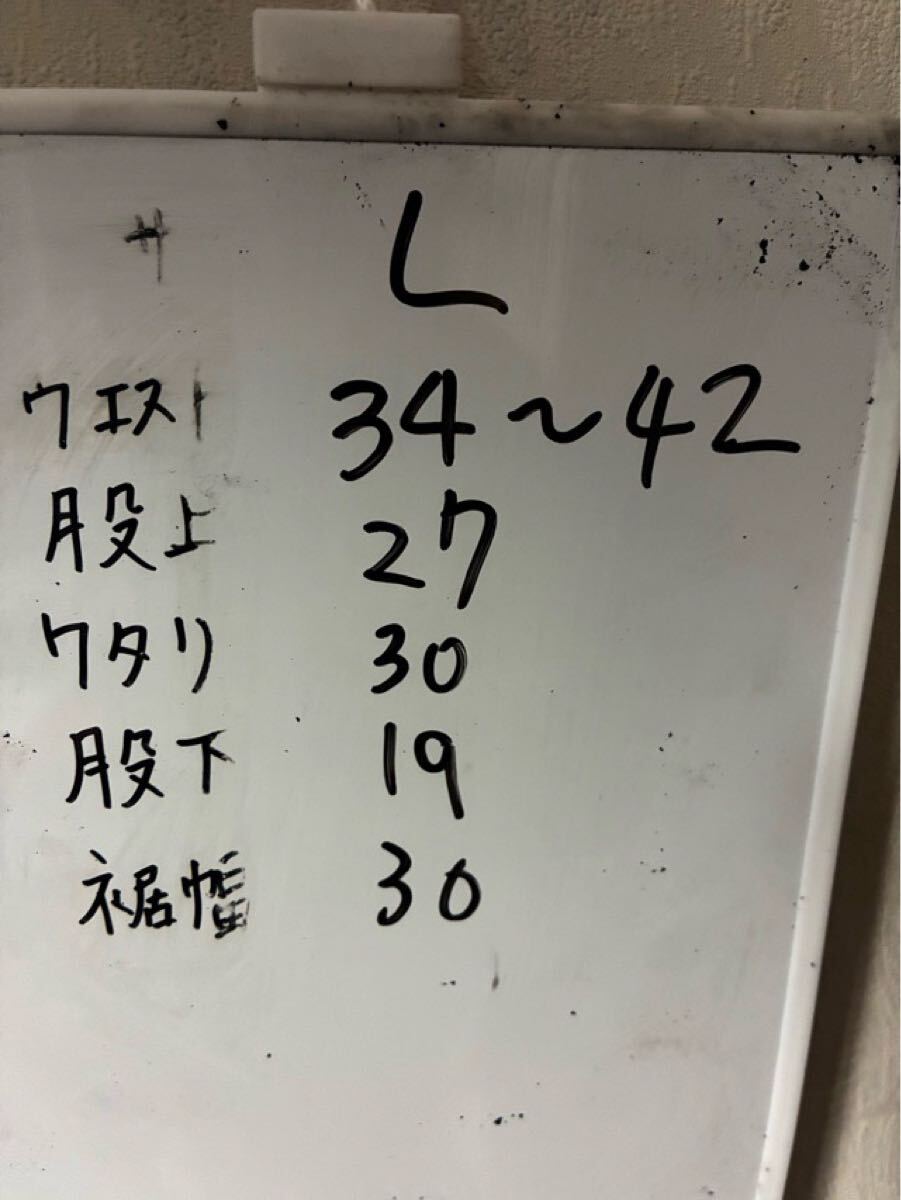 サ L
ウエスト 34~42
股上 27
ワタリ 30
股下 19
裾幅 30